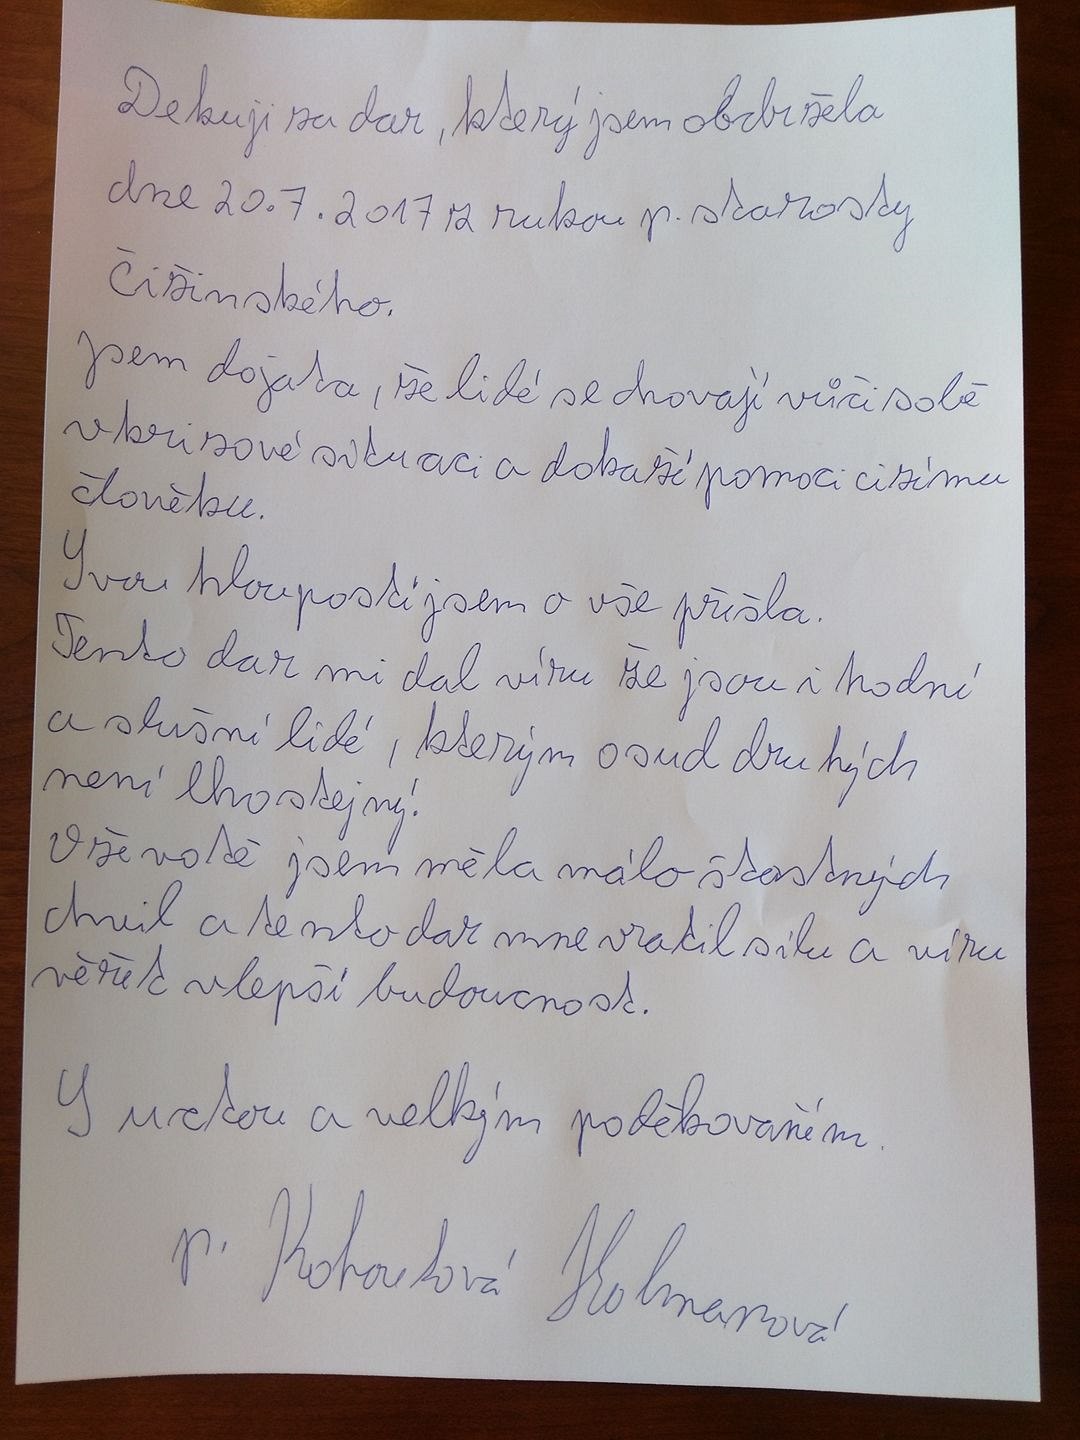 Dekuji za dar, který jsem obdržela
dne 20.7.2017 z rukou p. starosty
Čižinského.
Jsem dojata, že lidé se chovají vůči sobě
v krizové situaci a dokaží pomoci cizímu
člověku.
Svou hloupostí jsem o vše přišla.
Tento dar mi dal víru že jsou i hodní
a slušní lidé, kterým osud druhých
není lhostejný!
V životě jsem měla málo štastných
chvil a tento dar mne vratil silu a víru
věřit v lepší budoucnost.
S uctou a velkým poděkovaněm.
p. Kohoutová